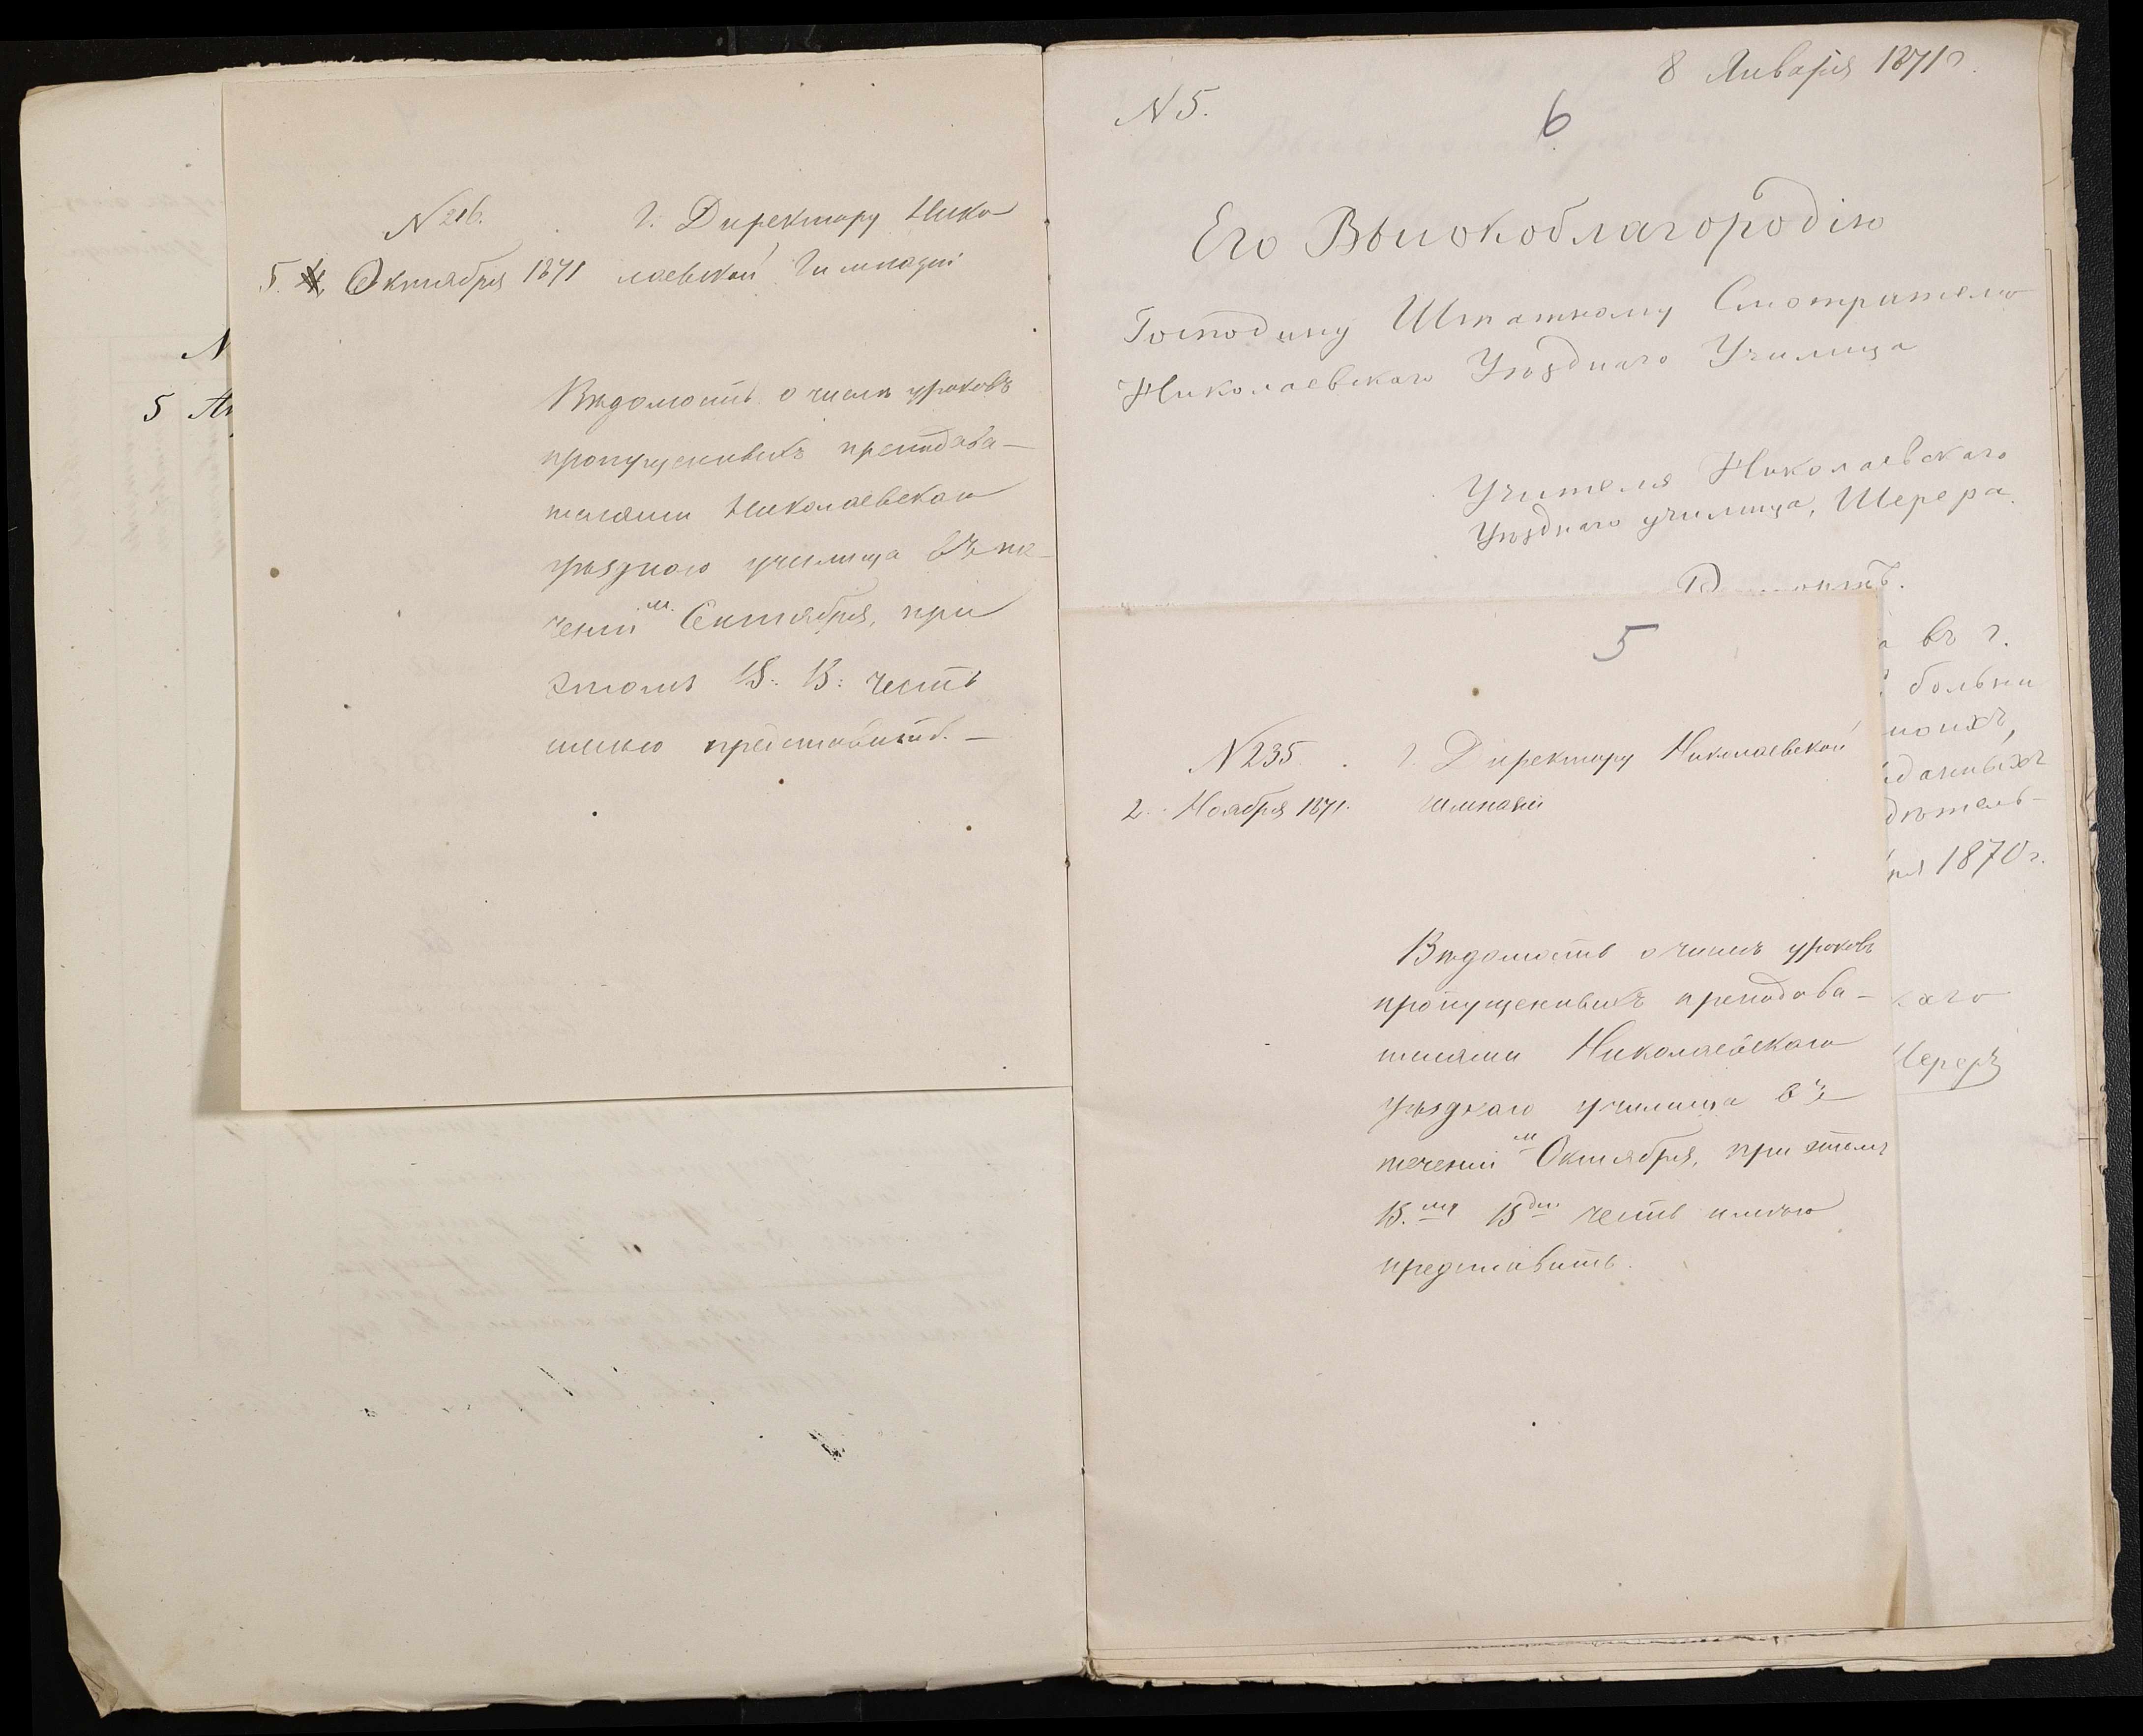 N 216.
Г. Директору Нико-
5. Октября 1871 лаевской Гимназіи
Вѣдомость о числѣ уроковъ
пропущенныхъ препода­ва-
телями Николаевскаго
уѣзднаго училища въ те-
ченіи м. Сентября, при
этомъ В. В. честь
имѣю представить. —
N
5 Ап
8 Января 1871 г.
N 5.
6
Его Высокоблагородію
Господину Штатному Смотрителю
Николаевскаго Уѣзднаго Училища
Учителя Николаевскаго
Уѣзднаго училища, Шерера.
въ г.
больни
моихъ,
данныхъ
дѣтель-
1870 г.
каго
Шереръ
5
N 235. Г. Директору Николаевской
2. Ноября 1871. Гимназіи
Вѣдомость о числѣ уроковъ
пропущенныхъ преподава-
телями Николаевскаго
уѣзднаго училища въ
теченіи м Октября, при этомъ
В. В. честь имѣю
представить.